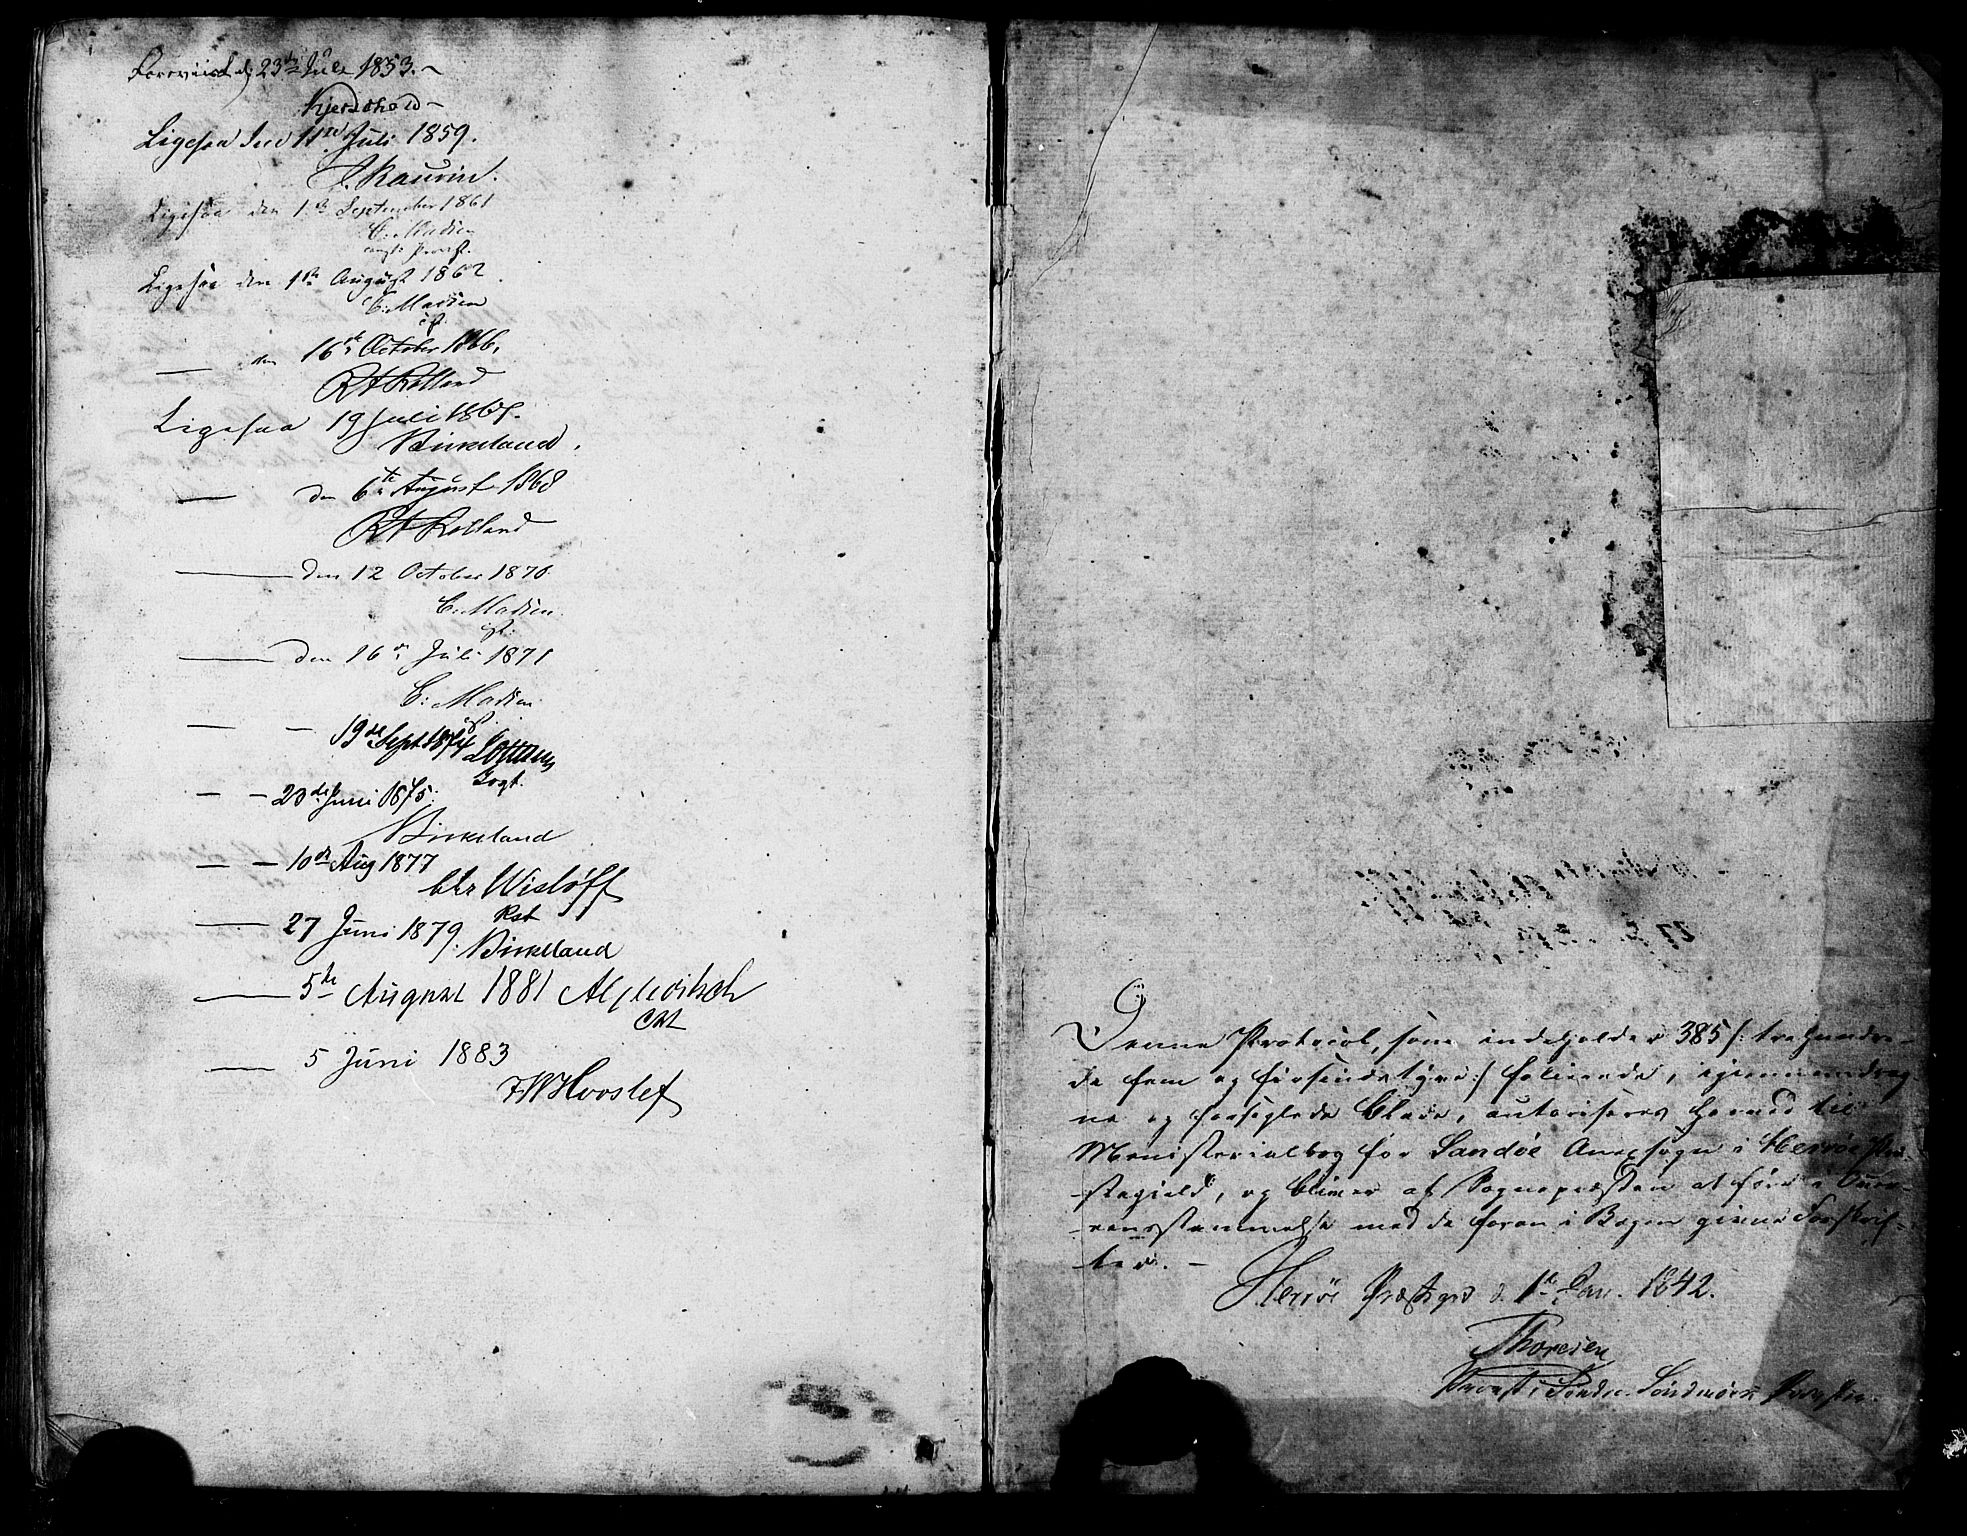 Foreviist d. 23de Juli 1853.
Kjerschow
Ligesaa den 11te Juli 1859.
J. Kaurin.
Ligesaa den 1ste September 1861
C. Madsen
const. Provst.
Ligesaa den 1ste August 1862
C. Madsen
cst.
— den 16de October 1866.
RA Rolland
Ligesaa 19 Juli 1867.
Birkeland.
— den 6te August 1868
RA Rolland
— den 12 October 1870.
C. Madsen.
cst.
— den 16de Juli 1871
C: Madsen.
cst.
— — 19de Sept 1874
— — 23de Juni 1875.
Birkeland
— — 10de Aug 1877
Chr Wisløff
Kst
— 27 Juni 1879.
Birkeland
— 5te August 1881
Cst
— 5 Juni 1883
FWHvoslef
Denne Protocol, som indeholder 385 /: trehundre-
de fem og firsindstyve :/ folierede, igjennemdrag-
ne og forseglede Blade, autoriseres herved til
Ministerialbog for Sandøe Anexsogn i Herrøe Præ-
stegield, og bliver af Sognepræsten at føre i Over-
eensstemmelse med de foran i Bogen givne Forskrif-
ter. —
Herrøe Præstegrd d. 1ste Jan. 1842.
Thoresen
Provst i Søndre Søndmørs Provstie.